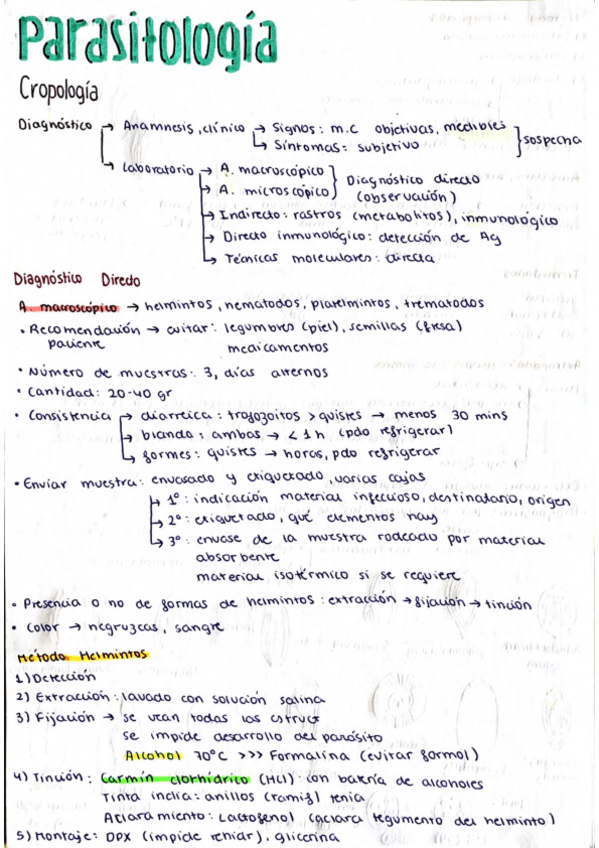 Parasitología
Cropología
Diagnóstico → Anamnesis, clínico → Signos: m.c objetivas, medibles
↳ Síntomas: subjetivo } sospecha
↳ Laboratorio → A. macroscópico
↳ A. microscópico } Diagnóstico directo (observación)
↳ Indirecto: rastros (metabolitos), inmunológico
↳ Directo inmunológico: detección de Ag
↳ Técnicas moleculares: directa
Diagnóstico Directo
A. macroscópico → helmintos, nematodos, platelmintos, trematodos
• Recomendación → evitar: legumbres (piel), semillas (fresa)
paciente medicamentos
• Número de muestras: 3, días alternos
• Cantidad: 20-40 gr
• Consistencia → diarreica: trofozoitos > quistes → menos 30 mins
↳ blanda: ambas → < 1 h (pdo refrigerar)
↳ formes: quistes → horas, pdo refrigerar
• Enviar muestra: envasado y etiquetado, varias cajas
↳ 1º: indicación material infeccioso, destinatario, origen
↳ 2º: etiquetado, qué elementos hay
↳ 3º: envase de la muestra rodeado por material
absorbente
material isotérmico si se requiere
• Presencia o no de formas de helmintos: extracción → fijación → tinción
• Color → negruzcas, sangre
Método Helmintos
1) Detección
2) Extracción: lavado con solución salina
3) Fijación → se vean todas las estruct
se impide desarrollo del parásito
Alcohol 70ºC >>> Formalina (evitar formol)
4) Tinción: Carmín clorhídrico (HCl): con batería de alcoholes
Tinta india: anillos (ramif) tenia
Aclaramiento: Lactofenol (aclara tegumento del helminto)
5) Montaje: DPX (impide rehidr), glicerina